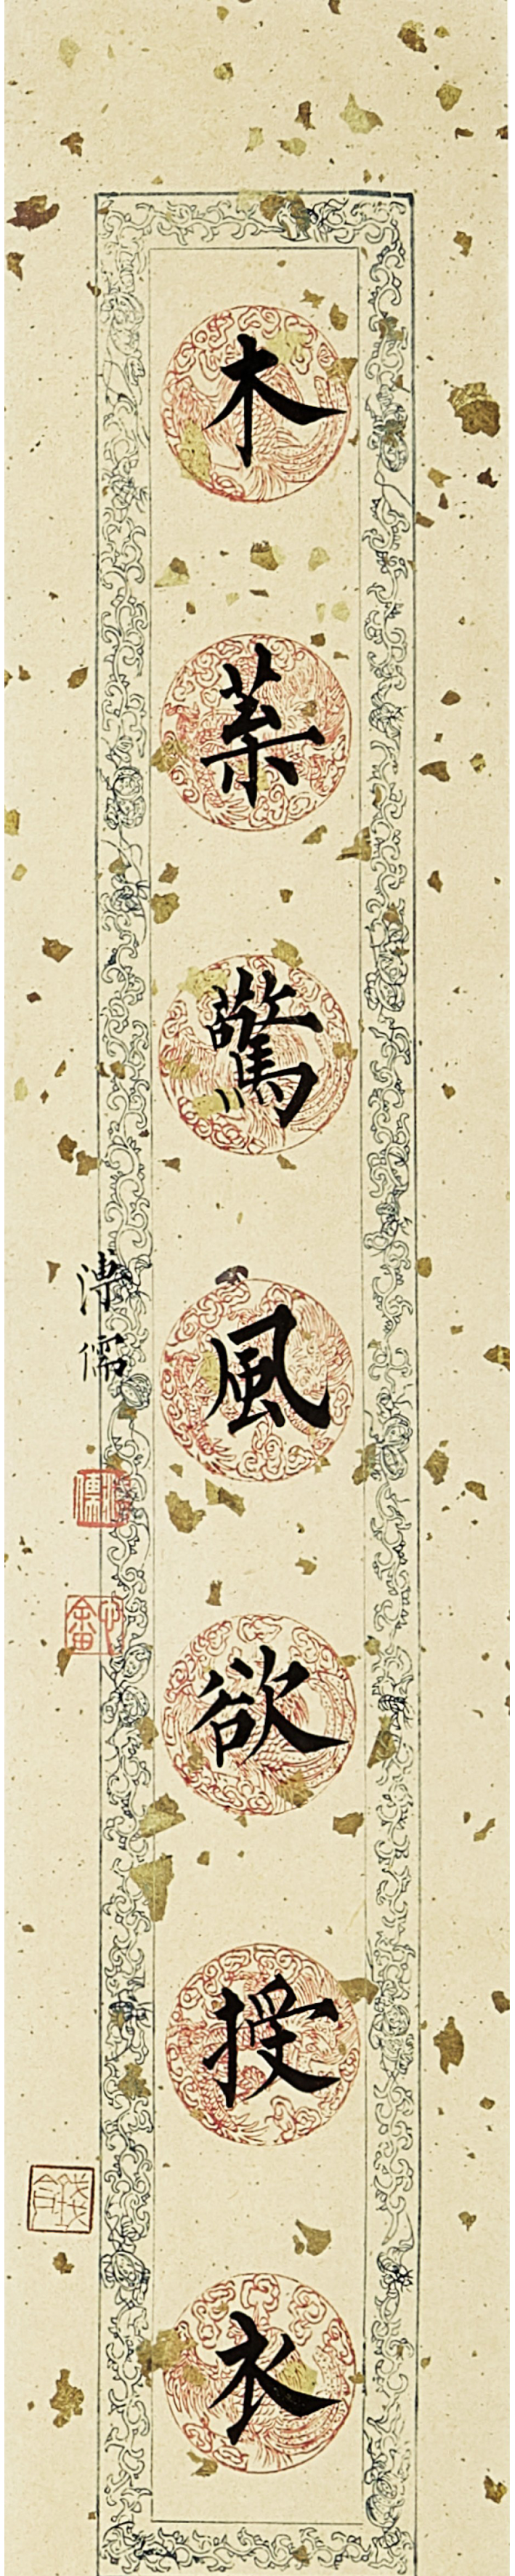 木葉驚風欲授衣
溥儒